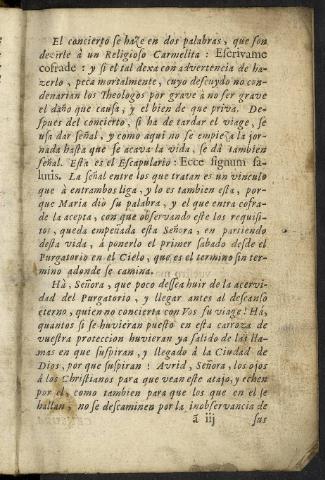 El concierto se haze en dos palabras, que son
decirle à un Religioso Carmelita: Escrivame
cofrade: y si el tal dexa con advertencia de ha-
zerlo, peca mortalmente, cuyo descuydo no con-
denarian los Theologos por grave à no ser grave
el daño que causa, y el bien de que priva. Des-
pues del concierto, si ha de tardar el viage, se
usa dar señal, y como aqui no se empieza la jor-
nada hasta que se acava la vida, se dà tambien
señal. Esta es el Escapulario: Ecce signum sa-
lutis. La señal entre los que tratan es un vinculo
que à entrambos liga, y lo es tambien esta, por-
que Maria diò su palabra, y el que entra cofra-
de la acepta, con que observando este los requisi-
tos, queda empeñada esta Señora, en partiendo
desta vida, à ponerlo el primer sabado desde el
Purgatorio en el Cielo, que es el termino sin ter-
mino adonde se camina.
Hà, Señora, que poco dessea huir de la acervi-
dad del Purgatorio, y llegar antes al descanso
eterno, quien no concierta con Vos su viage! Hà,
quantos si se huvieran puesto en esta carroza de
vuestra proteccion huvieran ya salido de las lla-
mas en que suspiran, y llegado à la Ciudad de
Dios, por que suspiran! Avrid, Señora, los ojos
à los Christianos para que vean este atajo, y echen
por el, como tambien para que los que en el se
hallan, no se descaminen por la inobservancia de
ā iij sus